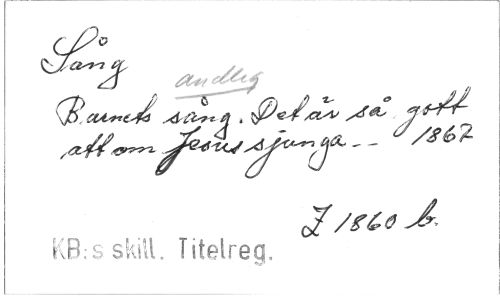 Sång
andlig
Barnets sång. Det är så gott
att om Jesus sjunga -- 1867
Z 1860 b.
KB:s skill. Titelreg.